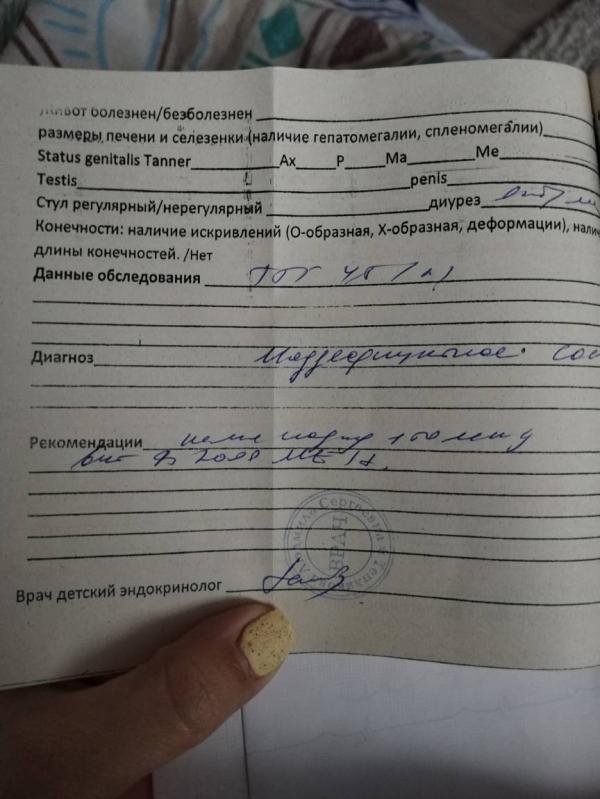 Живот болезнен/безболезнен
размеры печени и селезенки (наличие гепатомегалии, спленомегалии)
Status genitalis Tanner Ax P Ma Me
Testis penis
Стул регулярный/нерегулярный диурез
Конечности: наличие искривлений (О-образная, Х-образная, деформации), налич
длины конечностей. /Нет
Данные обследования
Диагноз Йоддефицитное сос
Рекомендации
вит Д 2000 МЕ
ВРАЧ
Сергеевна
Врач детский эндокринолог